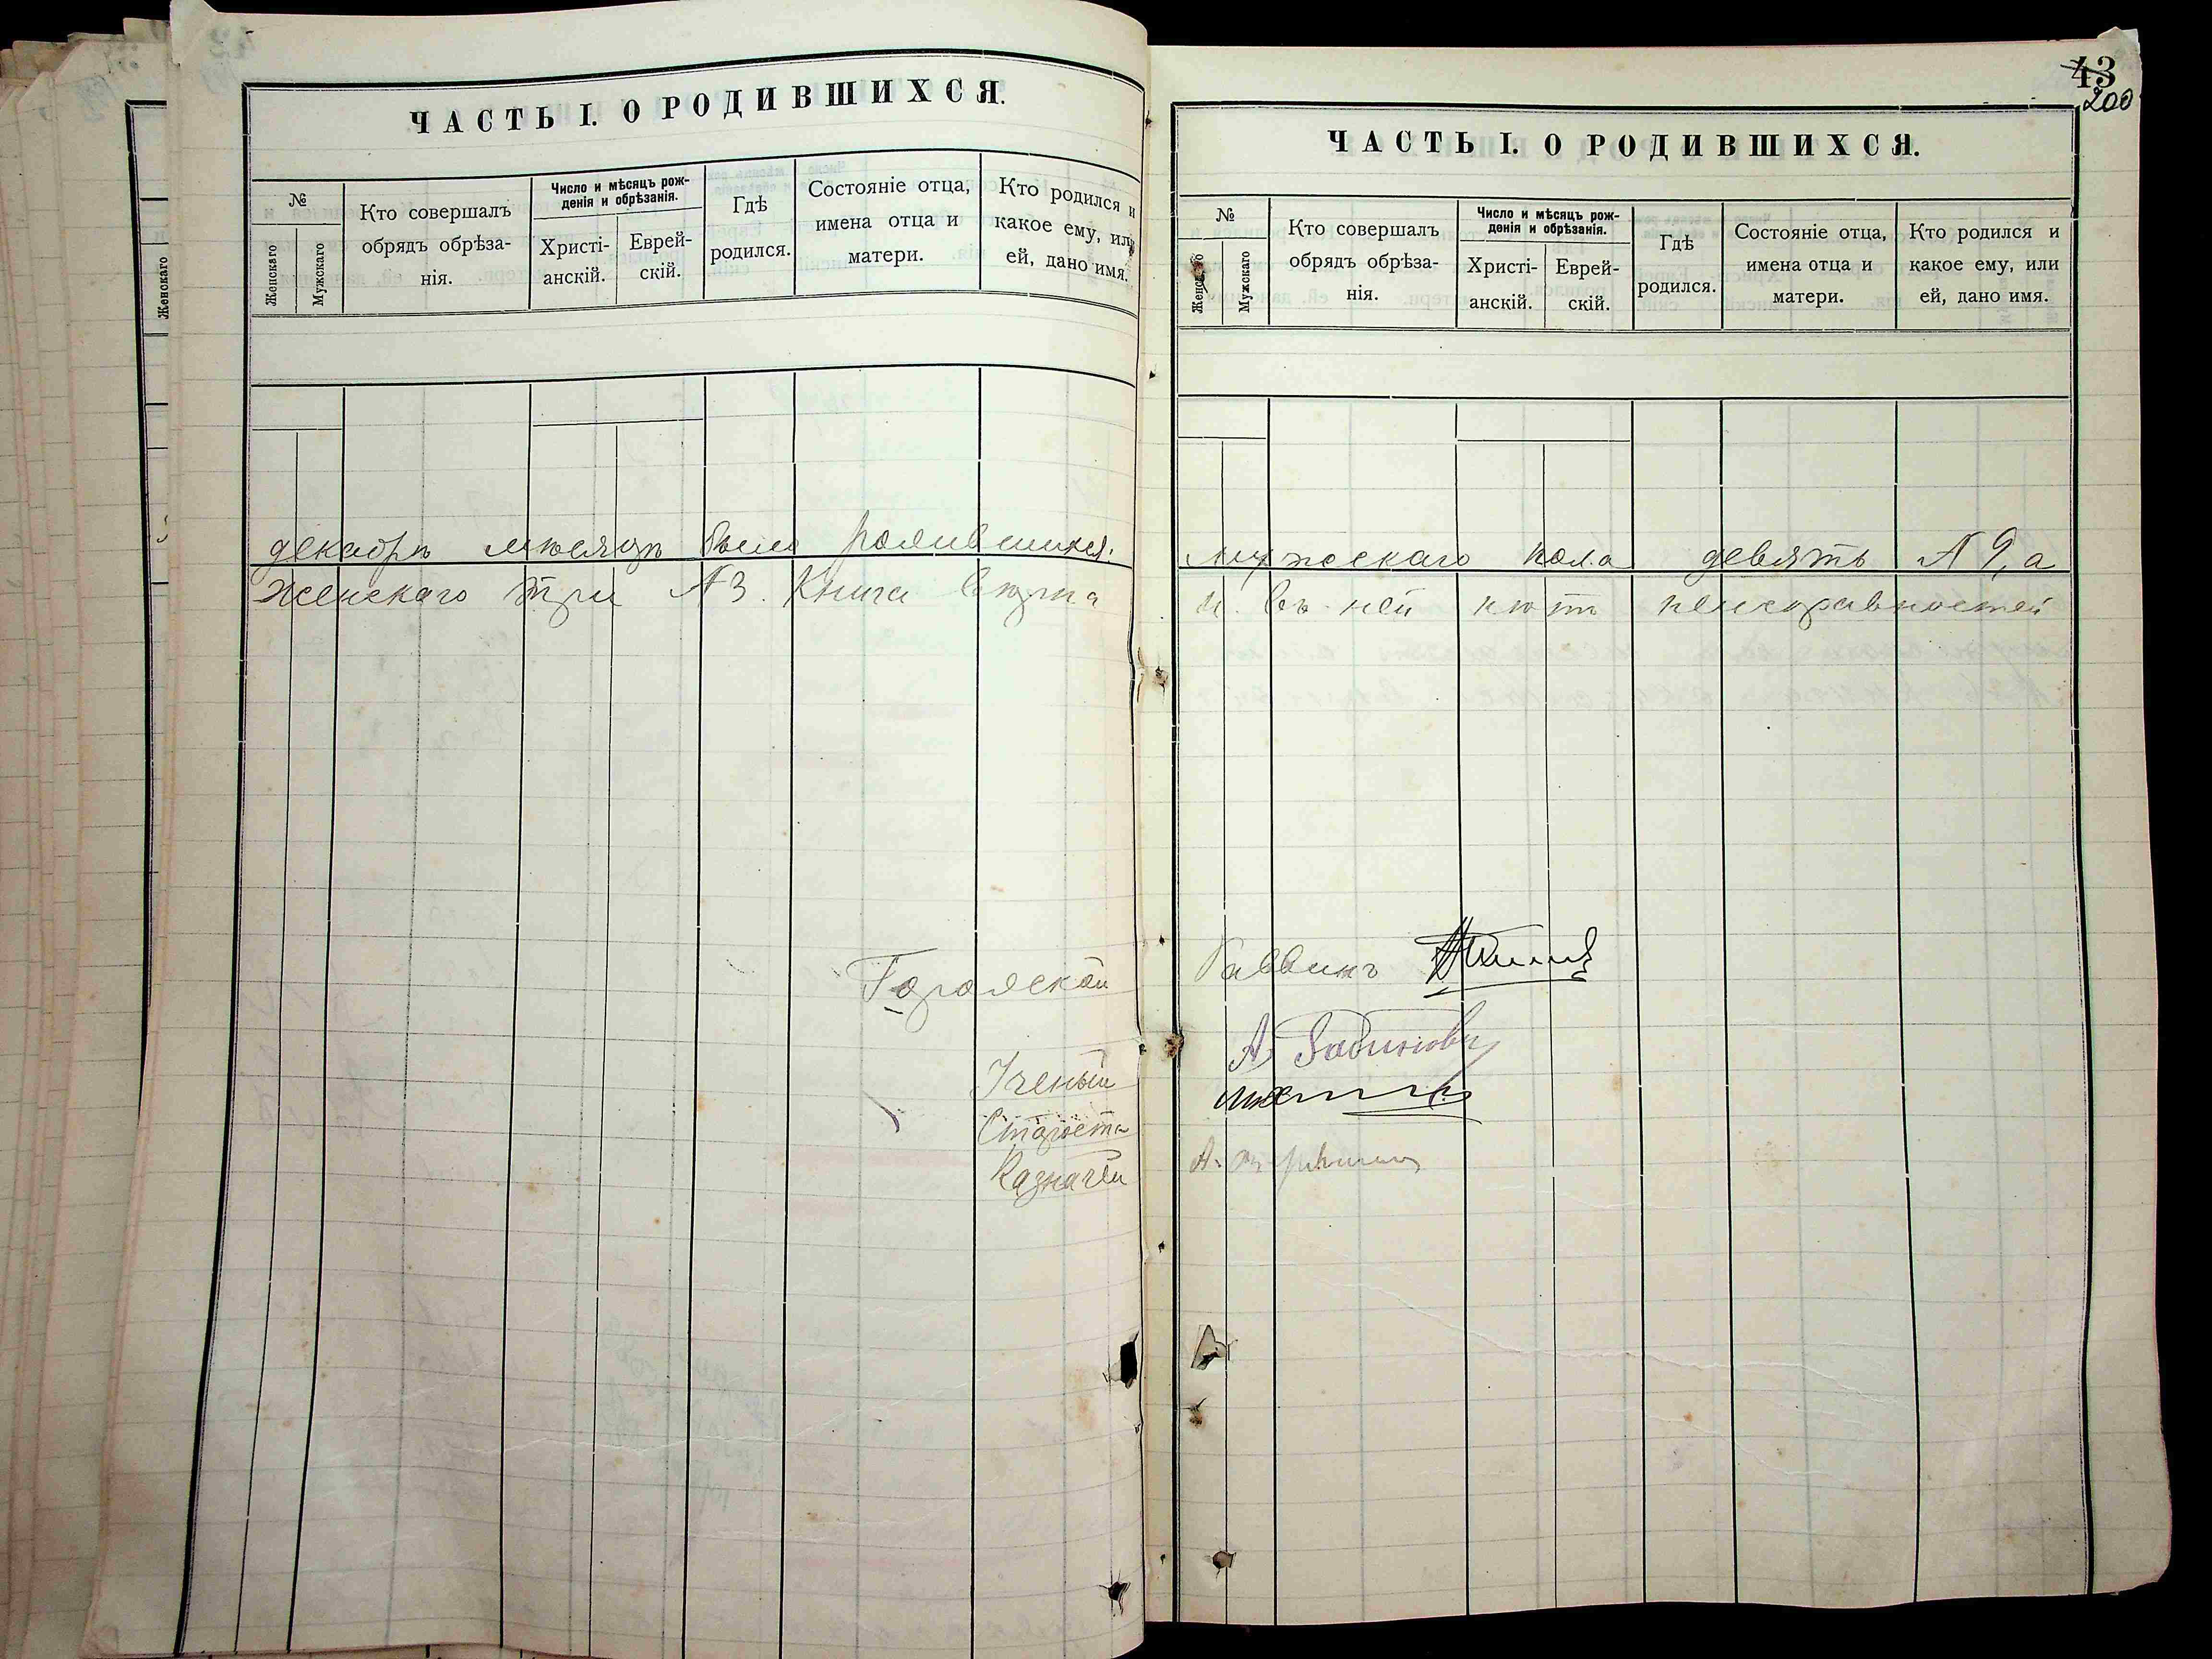 ЧАСТЬ I. О РОДИВШИХСЯ.
№
Женскаго
Мужскаго
Кто совершалъ
обрядъ обрѣза-
нія.
Число и мѣсяцъ рож-
денія и обрѣзанія.
Христі-
анскій.
Еврей-
скій.
Гдѣ
родился.
Состояніе отца,
имена отца и
матери.
Кто родился и
какое ему, или
ей, дано имя.
Женскаго
декабрѣ мѣсяцѣ было родившихся:
женскаго три №3. Книга вѣрна
Городской
Ученый
Староста
Казначей
43
200
ЧАСТЬ I. О РОДИВШИХСЯ.
№
Женскаго
Мужскаго
Кто совершалъ
обрядъ обрѣза-
нія.
Число и мѣсяцъ рож-
денія и обрѣзанія.
Христі-
анскій.
Еврей-
скій.
Гдѣ
родился.
Состояніе отца,
имена отца и
матери.
Кто родился и
какое ему, или
ей, дано имя.
мужескаго пола девять №9, а
и въ ней нѣтъ неисправностей
Раввинъ
А.
А.